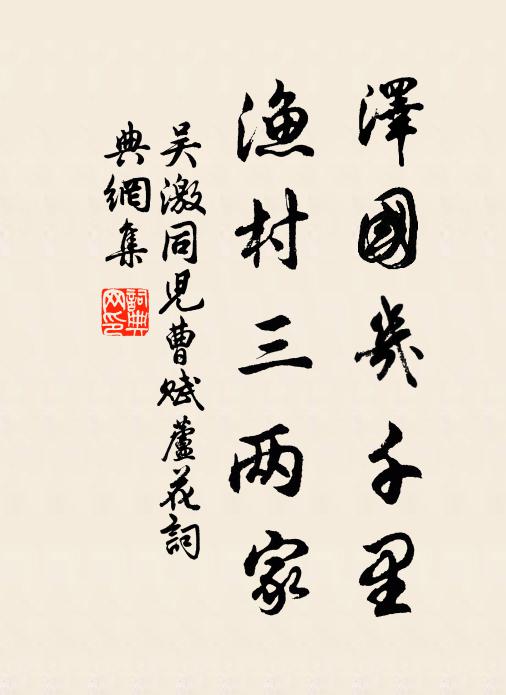 澤國幾千里
漁村三两家
吴激同兒曹賦蘆花詞
典網集
詞典
网印